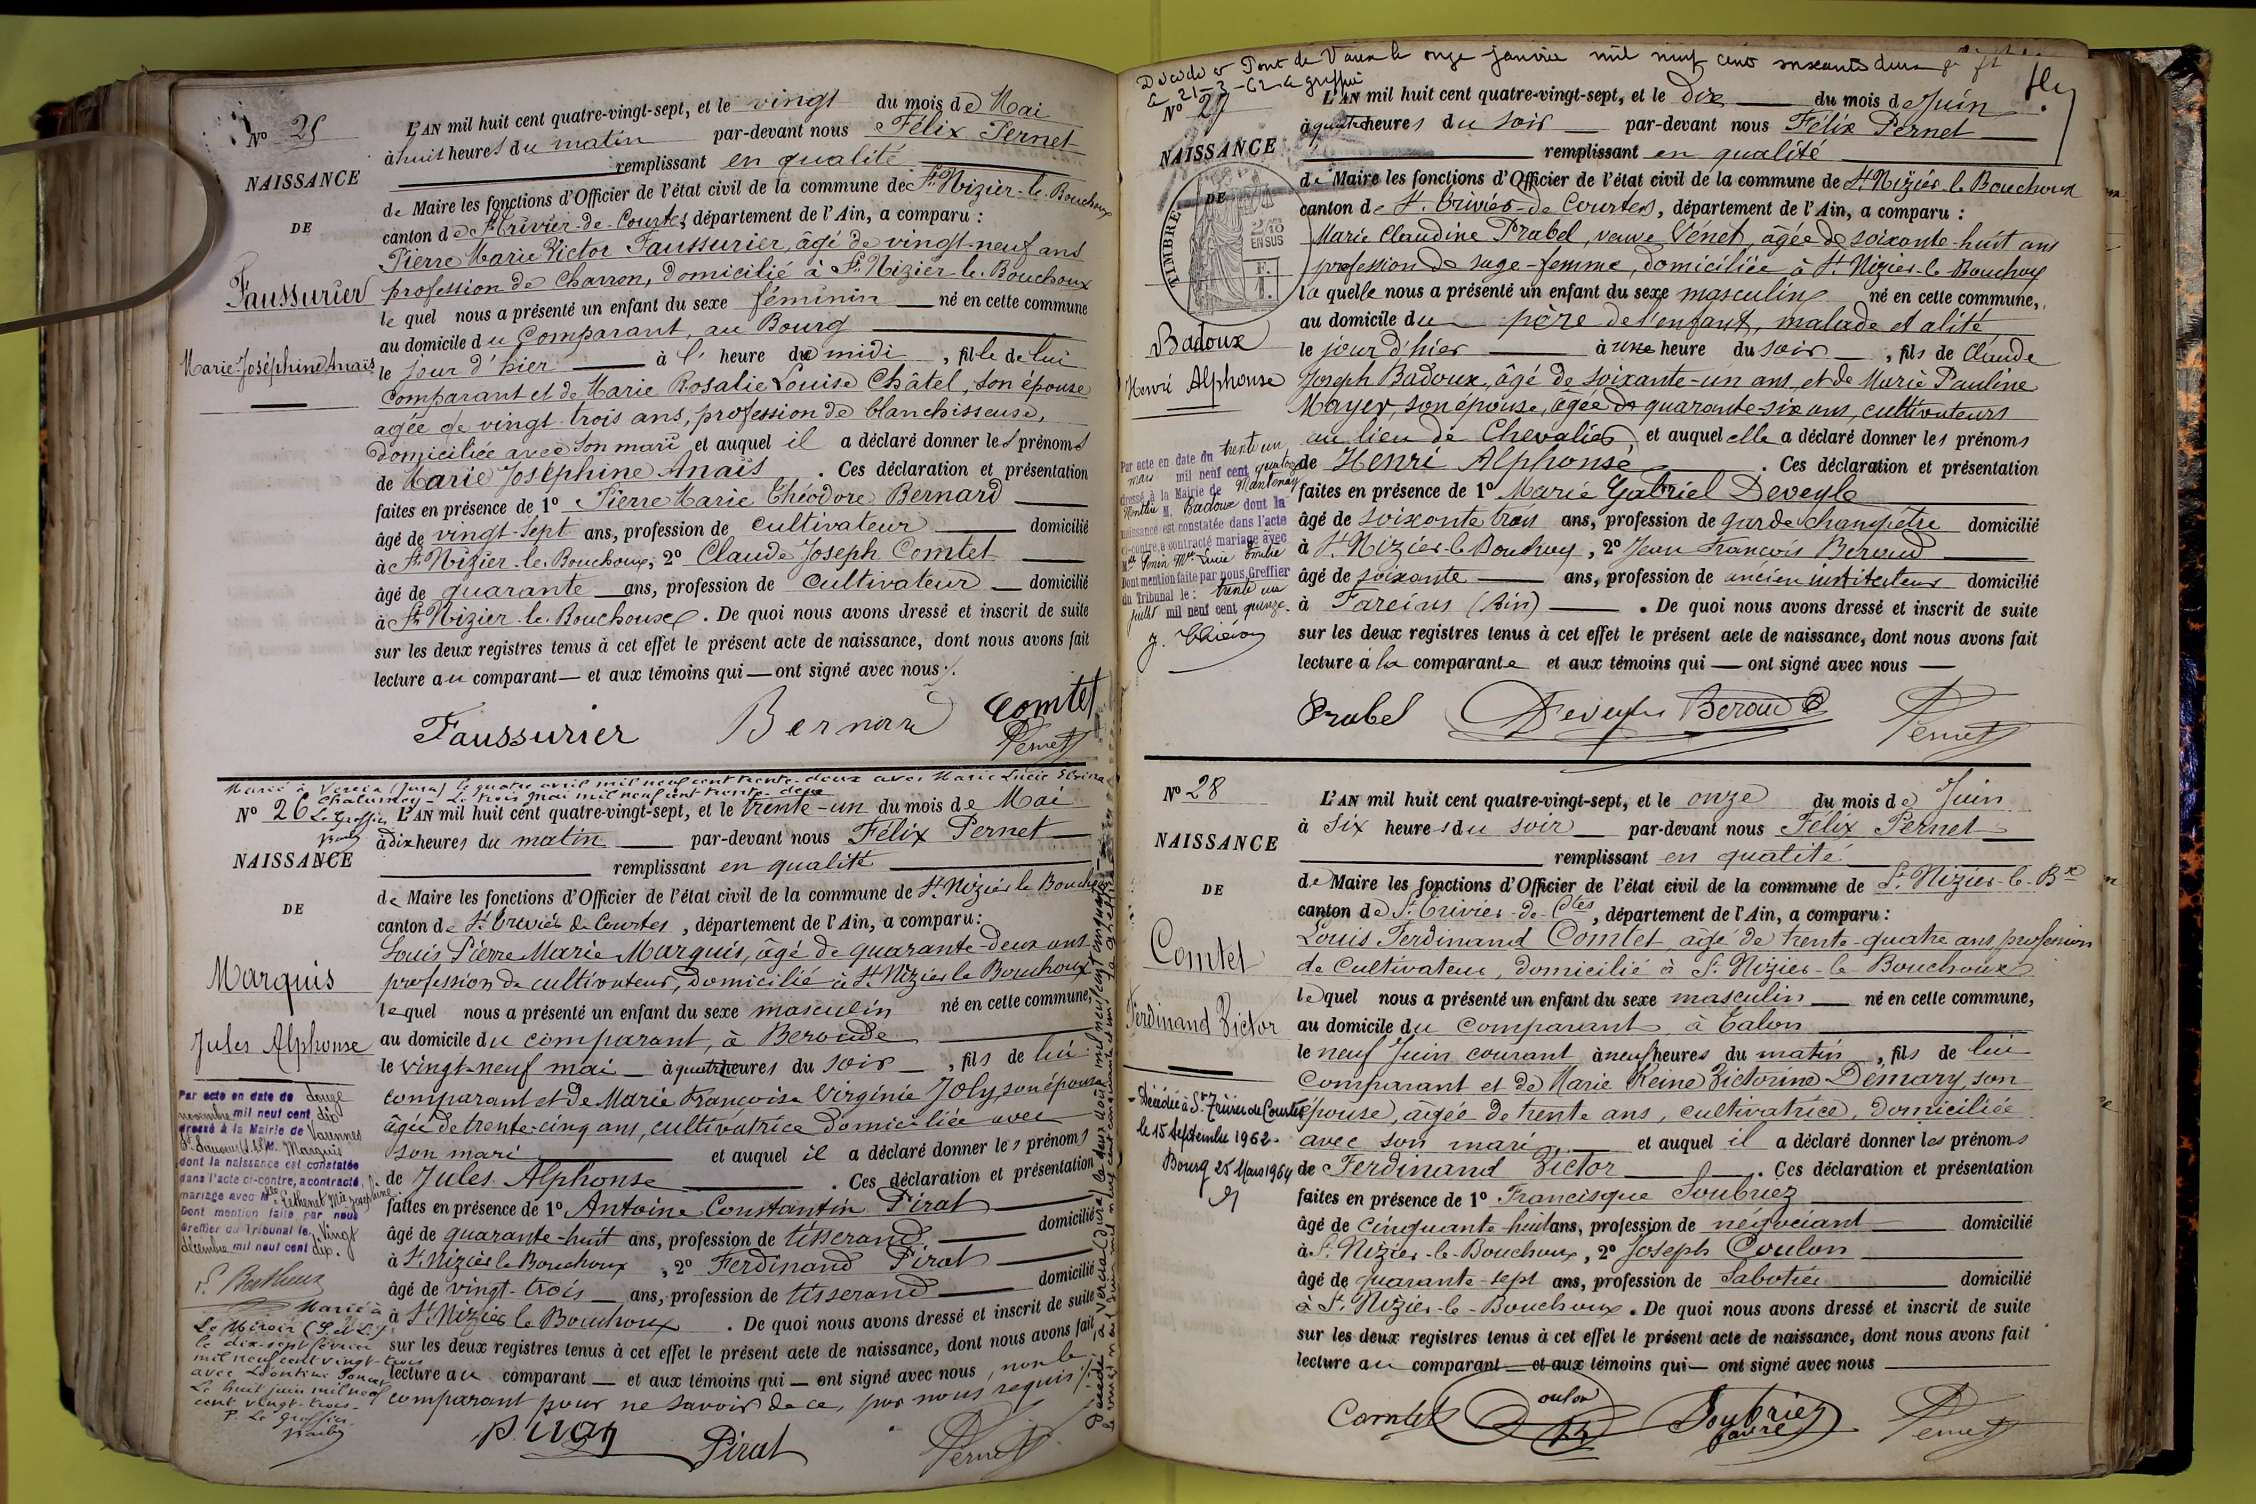 N° 25
NAISSANCE
DE
Faussurier
Marie Joséphine Anaïs
L'AN mil huit cent quatre-vingt-sept, et le vingt du mois de Mai
à huit heures du matin par-devant nous Félix Pernet
remplissant en qualité
de Maire les fonctions d'Officier de l'état civil de la commune de St. Nizier-le-Bouchoux
canton de St. Trivier-de-Courtes, département de l'Ain, a comparu :
Pierre Marie Victor Faussurier, âgé de vingt-neuf ans
profession de Charron, domicilié à St. Nizier-le-Bouchoux
le quel nous a présenté un enfant du sexe féminin né en cette commune
au domicile du Comparant, au Bourg
le jour d'hier à l' heure de midi, fille de lui
comparant et de Marie Rosalie Louise Châtel, son épouse
agée de vingt-trois ans, profession de blanchisseuse,
domiciliée avec son mari et auquel il a déclaré donner les prénoms
de Marie Joséphine Anaïs. Ces déclaration et présentation
faites en présence de 1° Pierre Marie Théodore Bernard
âgé de vingt-sept ans, profession de cultivateur domicilié
à St. Nizier-le-Bouchoux, 2° Claude Joseph Comtet
âgé de quarante ans, profession de cultivateur domicilié
à St. Nizier-le-Bouchoux. De quoi nous avons dressé et inscrit de suite
sur les deux registres tenus à cet effet le présent acte de naissance, dont nous avons fait
lecture au comparant et aux témoins qui ont signé avec nous.
Faussurier Bernard Comtet
Pernet
Marié à Veria (Jura) le quatre avril mil neuf cent trente-deux avec Marie Lucie
Chalumey - Le trois mai mil neuf cent trente-deux
Le Greffier
N° 26
NAISSANCE
DE
Marquis
Jules Alphonse
L'AN mil huit cent quatre-vingt-sept, et le trente-un du mois de Mai
à dix heures du matin par-devant nous Félix Pernet
remplissant en qualité
de Maire les fonctions d'Officier de l'état civil de la commune de St. Nizier le Bouchoux
canton de St. Trivier de Courtes, département de l'Ain, a comparu :
Louis Pierre Marie Marquis, âgé de quarante-deux ans
profession de cultivateur, domicilié à St. Nizier le Bouchoux
le quel nous a présenté un enfant du sexe masculin né en cette commune,
au domicile du comparant, à Beroude
le vingt-neuf mai à quatre heures du soir, fils de lui
comparant et de Marie Françoise Virginie Joly, son épouse
âgée de trente-cinq ans, cultivatrice domiciliée avec
son mari et auquel il a déclaré donner les prénoms
de Jules Alphonse. Ces déclaration et présentation
faites en présence de 1° Antoine Constantin Pirat
âgé de quarante-huit ans, profession de tisserand domicilié
à St. Nizier le Bouchoux, 2° Ferdinand Pirat
âgé de vingt-trois ans, profession de tisserand domicilié
à St. Nizier le Bouchoux. De quoi nous avons dressé et inscrit de suite
sur les deux registres tenus à cet effet le présent acte de naissance, dont nous avons fait
lecture au comparant et aux témoins qui ont signé avec nous, non le
comparant pour ne savoir de ce, par nous requis
Pirat Pirat Pernet
Par acte en date du douze
novembre mil neuf cent dix
dressé à la Mairie de Varennes
St. Sauveur M. Marquis
dont la naissance est constatée
dans l'acte ci-contre, a contracté
mariage avec Mlle Léthenet Mie Joséphine
Dont mention faite par nous
Greffier du Tribunal le vingt
décembre mil neuf cent dix.
Marié à
Le Miroir (S. et L.)
le dix-sept février
mil neuf cent vingt-trois
avec Léontine
Le huit juin mil neuf
cent vingt-trois.
P. Le Greffier
Décédé à Pont de Vaux le onze janvier mil neuf cent soixante deux
le 21-3-62 le greffier
N° 27
NAISSANCE
DE
TIMBRE
2/10
EN SUS
Badoux
Henri Alphonse
L'AN mil huit cent quatre-vingt-sept, et le dix du mois de Juin
à quatre heures du soir par-devant nous Félix Pernet
remplissant en qualité
de Maire les fonctions d'Officier de l'état civil de la commune de St. Nizier-le-Bouchoux
canton de St. Trivier-de-Courtes, département de l'Ain, a comparu :
Marie Claudine Prabel, veuve Vénet, âgée de soixante-huit ans
profession de sage-femme, domiciliée à St. Nizier-le-Bouchoux
la quelle nous a présenté un enfant du sexe masculin né en cette commune,
au domicile du père de l'enfant, malade et alité
le jour d'hier à une heure du soir, fils de Claude
Joseph Badoux, âgé de soixante-un ans et de Marie Pauline
Mayer, son épouse, agée de quarante-six ans, cultivateurs
au lieu de Chevalier, et auquel elle a déclaré donner les prénoms
de Henri Alphonse. Ces déclaration et présentation
faites en présence de 1° Marie Gabriel Deveyle
âgé de soixante trois ans, profession de garde champêtre domicilié
à St. Nizier-le-Bouchoux, 2° Jean François Beroud
âgé de soixante ans, profession de ancien instituteur domicilié
à Fareins (Ain). De quoi nous avons dressé et inscrit de suite
sur les deux registres tenus à cet effet le présent acte de naissance, dont nous avons fait
lecture à la comparante et aux témoins qui ont signé avec nous
Prabel Deveyle Beroud Pernet
Par acte en date du trente un
mars mil neuf cent quatorze
dressé à la Mairie de Mantenay
Montlin M. Badoux dont la
naissance est constatée dans l'acte
ci-contre, a contracté mariage avec
Mlle Ponin Mie Lucie Émilie
Dont mention faite par nous Greffier
du Tribunal le: trente un
juillet mil neuf cent quinze.
N° 28
NAISSANCE
DE
Comtet
Ferdinand Victor
L'AN mil huit cent quatre-vingt-sept, et le onze du mois de Juin
à six heures du soir par-devant nous Félix Pernet
remplissant en qualité
de Maire les fonctions d'Officier de l'état civil de la commune de St. Nizier-le-Bx
canton de St. Trivier-de-Ctes, département de l'Ain, a comparu :
Louis Ferdinand Comtet, âgé de trente-quatre ans, profession
de Cultivateur, domicilié à St. Nizier-le-Bouchoux
le quel nous a présenté un enfant du sexe masculin né en cette commune,
au domicile du comparant, à Talon
le neuf Juin courant à neuf heures du matin, fils de lui
comparant et de Marie Reine Victorine Démary, son
épouse, âgée de trente ans, cultivatrice, domiciliée
avec son mari, et auquel il a déclaré donner les prénoms
de Ferdinand Victor. Ces déclaration et présentation
faites en présence de 1° Francisque Soubriez
âgé de cinquante-huit ans, profession de négociant domicilié
à St. Nizier-le-Bouchoux, 2° Joseph Coulon
âgé de quarante-sept ans, profession de Sabotier domicilié
à St. Nizier-le-Bouchoux. De quoi nous avons dressé et inscrit de suite
sur les deux registres tenus à cet effet le présent acte de naissance, dont nous avons fait
lecture au comparant et aux témoins qui ont signé avec nous
Comtet Coulon Soubriez Pernet
- Décédé à St Trivier de Courtes
le 15 Septembre 1962.
Bourg 25 Mars 1964